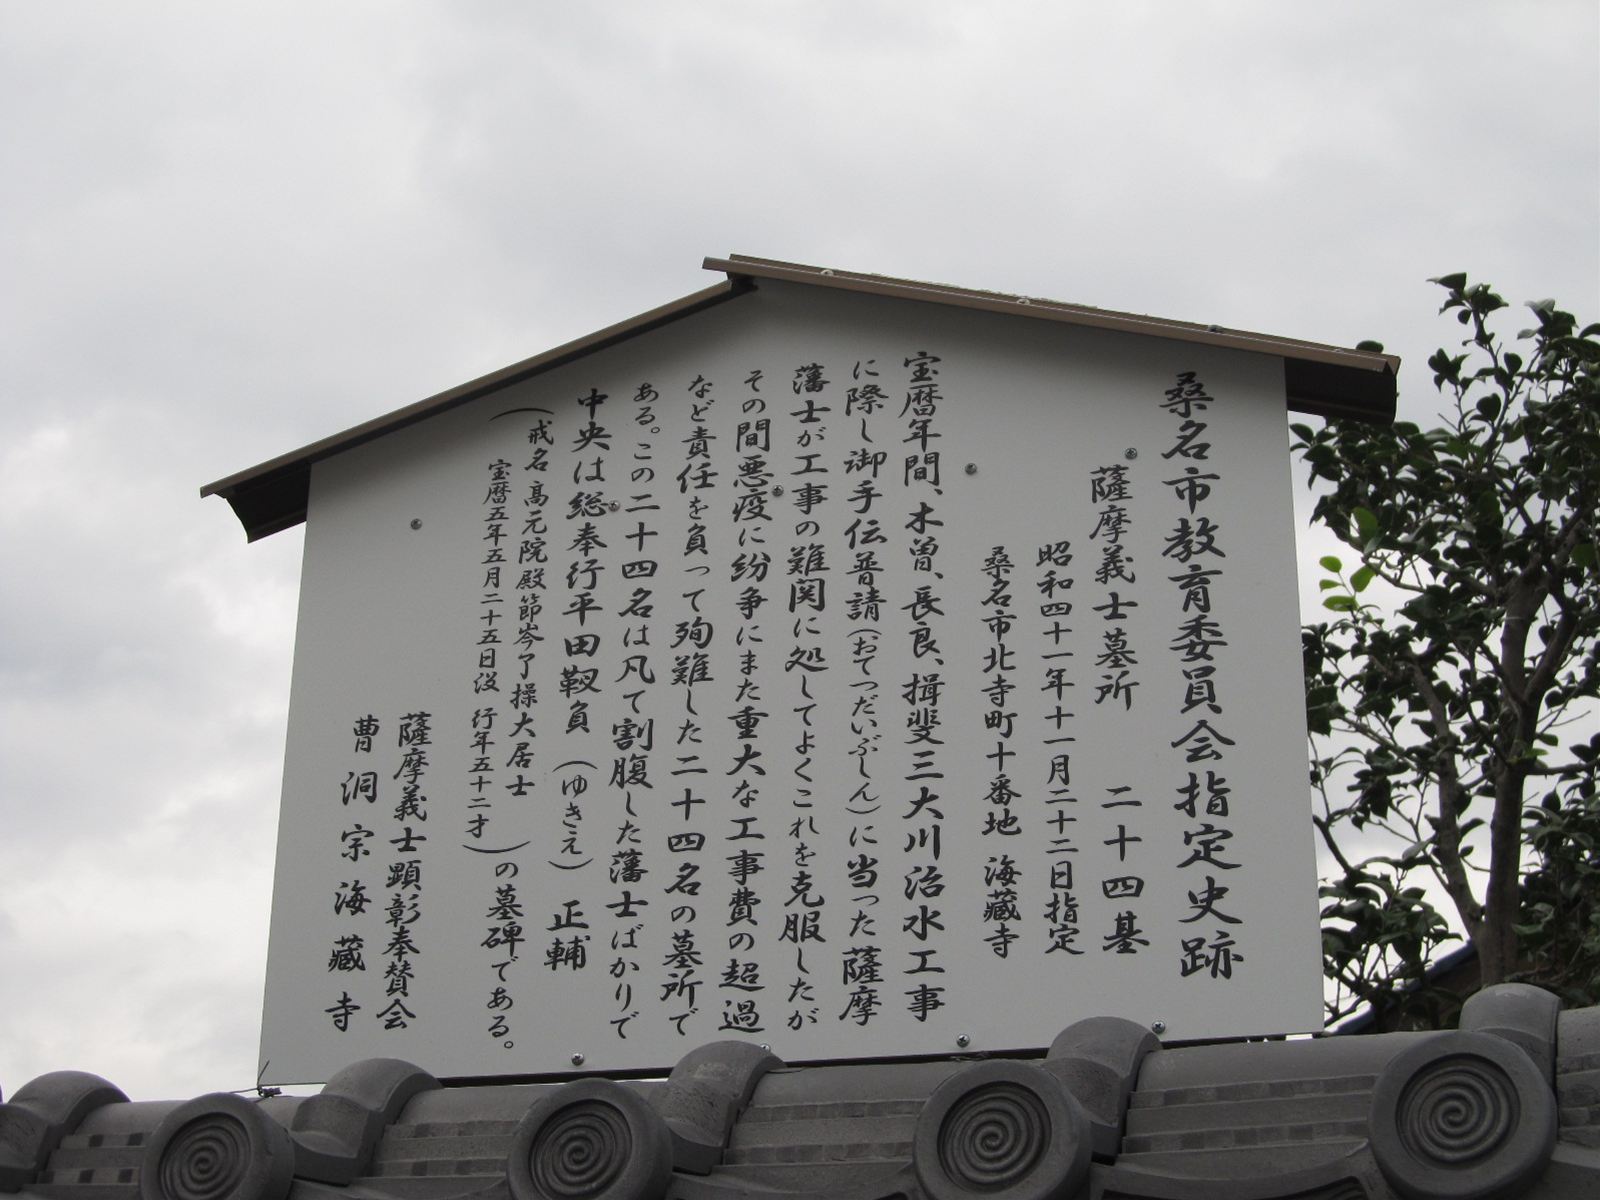 桑名市教育委員会指定史跡
薩摩義士墓所　二十四基
昭和四十一年十一月二十二日指定
桑名市北寺町十番地　海藏寺
宝暦年間、木曽、長良、揖斐三大川治水工事
に際し御手伝普請(おてつだいぶしん)に当った薩摩
藩士が工事の難関に処してよくこれを克服したが
その間悪疫に紛争にまた重大な工事費の超過
など責任を負って殉難した二十四名の墓所で
ある。この二十四名は凡て割腹した藩士ばかりで
中央は総奉行平田靱負(ゆきえ)正輔
(戒名 髙元院殿節岑了操大居士
宝暦五年五月二十五日没 行年五十二才)の墓碑である。
薩摩義士顕彰奉賛会
曹洞宗海藏寺